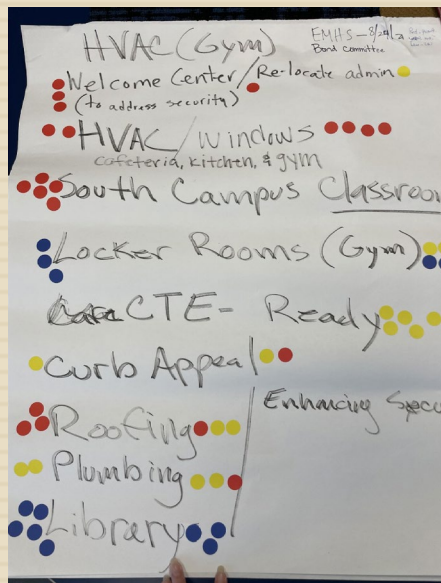 HVAC (Gym)
EMHS - 8/24/21
Bond Committee
Welcome Center/Re-locate admin
(to address security)
HVAC/Windows
Cafeteria, Kitchen, & gym
South Campus Classroo
Locker Rooms (Gym)
CTE- Ready
Curb Appeal
Roofing
Enhancing
Plumbing
Library